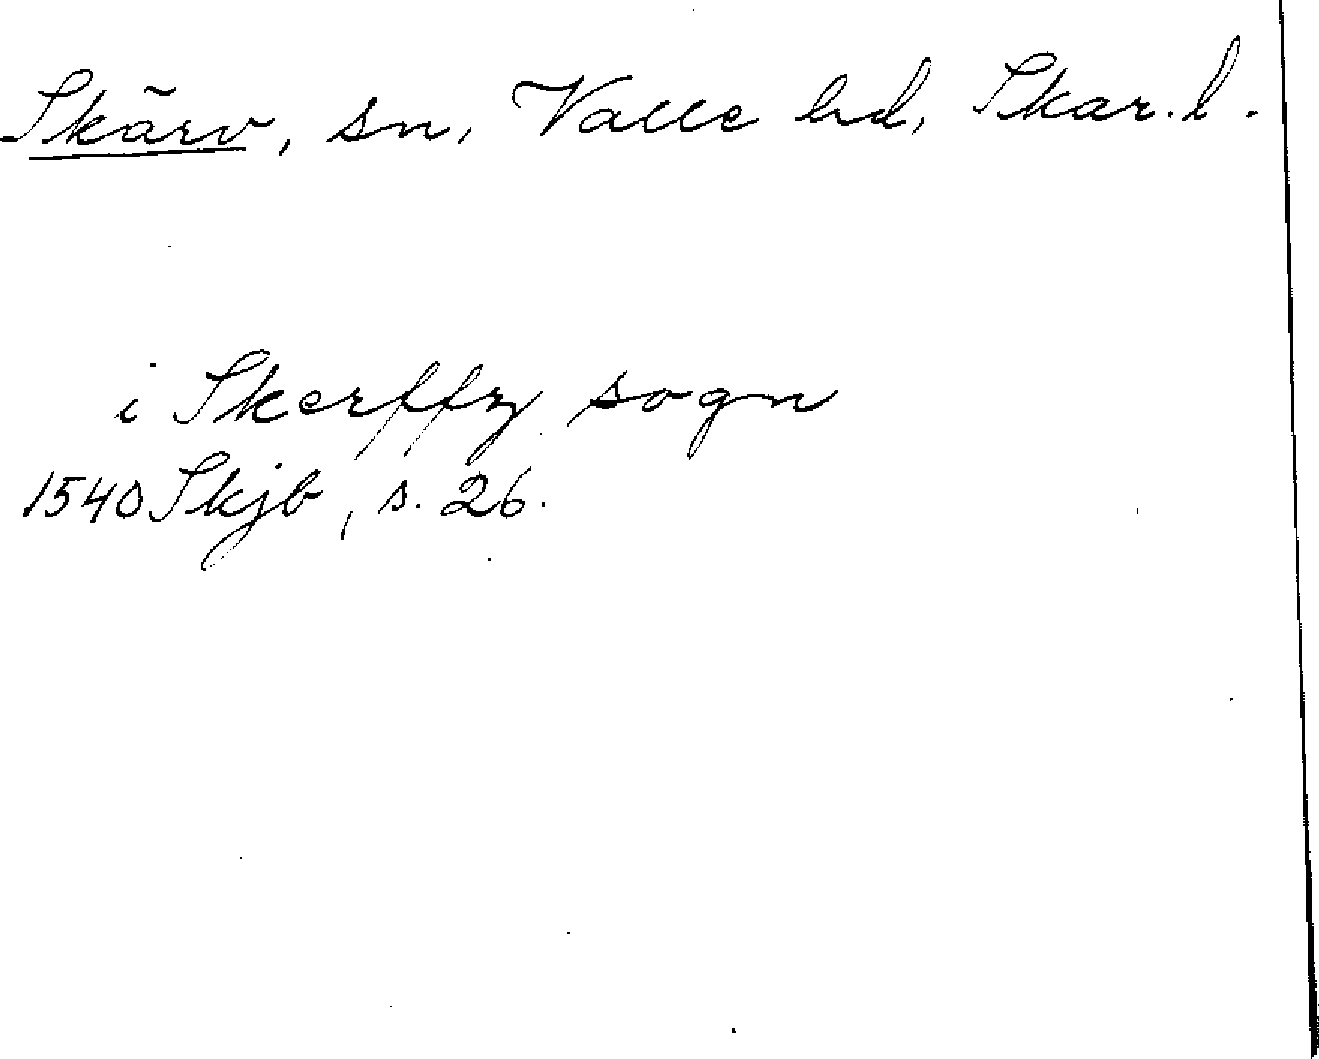 Skärv, sn, Valle hd, Skar. l.
i Skerffz sogn
1540 Skjb, s. 26.